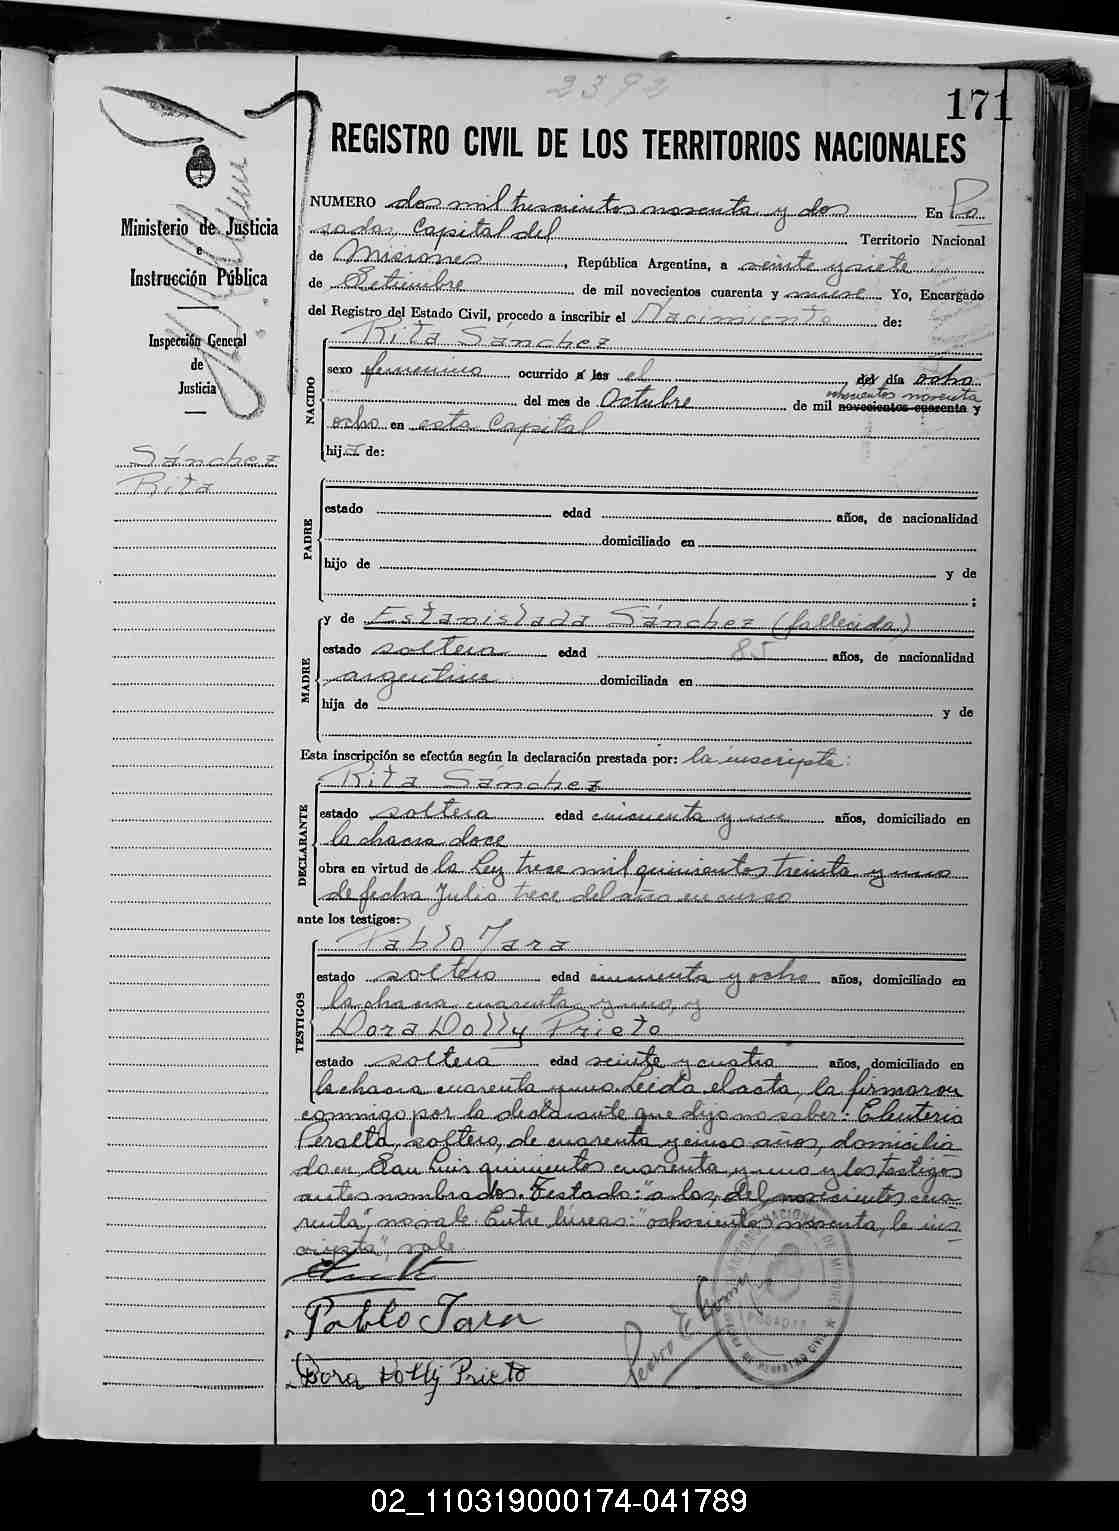 2392
171
REGISTRO CIVIL DE LOS TERRITORIOS NACIONALES
Ministerio de Justicia
e
Instrucción Pública
Inspección General
de
Justicia
Sánchez
Rita
NUMERO dos mil trescientos noventa y dos En Po
sadas, Capital del Territorio Nacional
de Misiones, República Argentina, a veinte y siete
de Setiembre de mil novecientos cuarenta y nueve Yo, Encargado
del Registro del Estado Civil, procedo a inscribir el Nacimiento de:
NACIDO
Rita Sánchez
sexo femenino ocurrido a las el, del día ocho
ochocientos noventa
del mes de Octubre de mil novecientos cuarenta y
ocho en esta Capital
hija de:
PADRE
estado edad años, de nacionalidad
domiciliado en
hijo de y de
;
MADRE
y de Estanislada Sánchez (fallecida)
estado soltera edad 85 años, de nacionalidad
argentina domiciliada en
hija de y de
Esta inscripción se efectúa según la declaración prestada por: la inscripta:
DECLARANTE
Rita Sánchez
estado soltera edad cincuenta y un años, domiciliado en
la chacra doce
obra en virtud de la Ley trece mil quinientos treinta y uno
de fecha Julio trece del año en curso
ante los testigos:
TESTIGOS
Pablo Jara
estado soltero edad cincuenta y ocho años, domiciliado en
la chacra cuarenta y uno, y
Dora Dolly Prieto
estado soltera edad veinte y cuatro años, domiciliado en
la chacra cuarenta y uno. Leída el acta, la firmaron
conmigo por la declarante que dijo no saber: Eleuterio
Peralta, soltero, de cuarenta y cinco años, domicilia
do en San Luis quinientos cuarenta y uno y los testigos
antes nombrados. Testado: "a las, del, novecientos cua-
renta", no vale. Entre líneas: "ochocientos noventa, la ins
cripta", vale.
Pablo Jara
Dora Dolly Prieto
Pedro E. Gomez
POSADAS
02_110319000174-041789